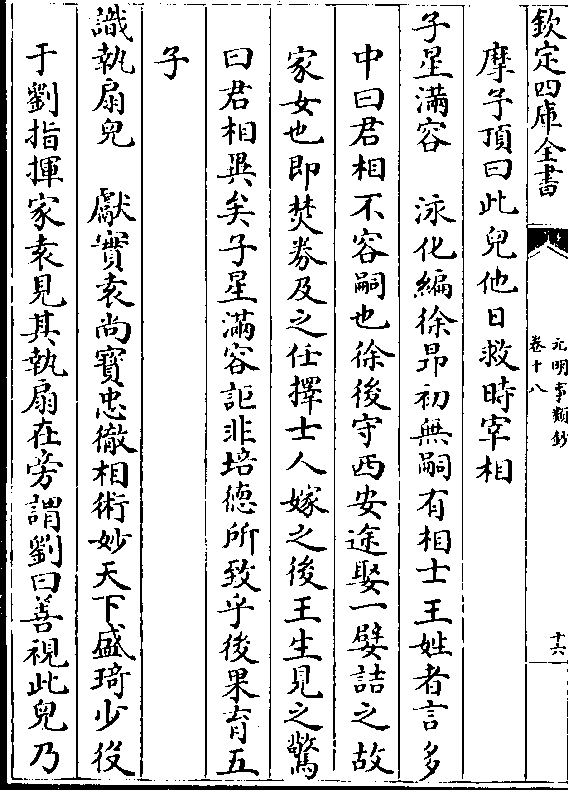 欽定四庫全書
元明事類鈔
卷十八
十六
摩子頂曰此兒他日救時宰相
子星滿容　泳化編徐昂初無嗣有相士王姓者言多
中曰君相不容嗣也徐後守西安途娶一嬖詰之故
家女也即焚券及之任擇士人嫁之後王生見之驚
曰君相異矣子星滿容詎非培德所致乎後果育五
子
識執扇兒　獻實袁尚寶忠徹相術妙天下盛琦少役
于劉指揮家袁見其執扇在旁謂劉曰善視此兒乃